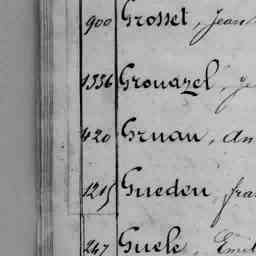 900 Grosset, Jean
1336 Grouazel, Je
420 Gruau, An
1215 Guedeu, fra
247 Guele, Emil